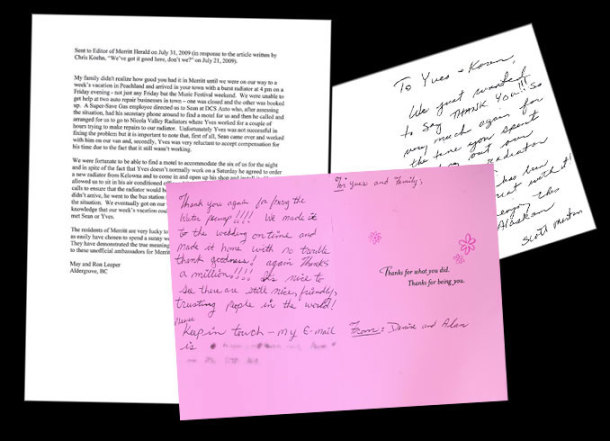 Sent to Editor of Merritt Herald on July 31, 2009 (in response to the article written by
Chris Koehn, "We've got it good here, don't we?" on July 21, 2009).
My family didn't realize how good you had it in Merritt until we were on our way to a
week's vacation in Peachland and arrived in your town with a burst radiator at 4 pm on a
Friday evening - not just any Friday but the Music Festival weekend. We were unable to
get help at two auto repair businesses in town - one was closed and the other was booked
up. A Super-Save Gas employee directed us to Sean at DCS Auto who, after assessing
the situation, had his secretary phone around to find a motel for us and then he called and
arranged for us to go to Nicola Valley Radiators where Yves worked for a couple of
hours trying to make repairs to our radiator. Unfortunately Yves was not successful in
fixing the problem but it is important to note that, first of all, Sean came over and worked
with him on our van and, secondly, Yves was very reluctant to accept compensation for
his time due to the fact that it still wasn't working.
We were fortunate to be able to find a motel to accommodate the six of us for the night
and in spite of the fact that Yves doesn't normally work on a Saturday he agreed to order
a new radiator from Kelowna and to come in and open up his shop and
allowed us to sit in his air conditioned
calls to ensure that the radiator would
didn't arrive, he went to the bus station
the situation. We eventually got on our
knowledge that our week's vacation could
met Sean or Yves.
The residents of Merritt are very lucky to
as easily have chosen to spend a sunny
They have demonstrated the true meaning
to these unofficial ambassadors for Merritt
May and Ron Leeper
Aldergrove, BC
To Yves - Koran,
We just wanted
to say THANK YOU!!! So
very much again for
the time you spent
our
radiator
has been
great with it!
enjoy this
Alaskan
Scott
To: Yves and Family;
Thank you again for fixing the
Water pump!!!! We made it
to the wedding on time and
made it home with no trouble
thank goodness! again Thanks
a million!!!! its nice to
see there are still nice, friendly,
trusting people in the world!
Please
Keep in touch - my E-mail
is
Thanks for what you did.
Thanks for being you.
From: Denise and Alan